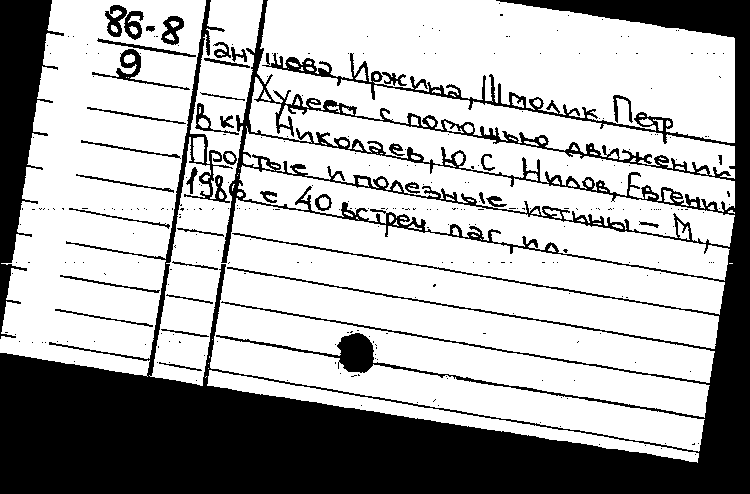 86-8
9
Ганушова, Иржина, Штолик, Петр
Худеем с помощью движений
В кн. Николаев, Ю.С., Нилов, Евгений
Простые и полезные истины. - М.,
1986 с. 40 встреч. паг., ил.